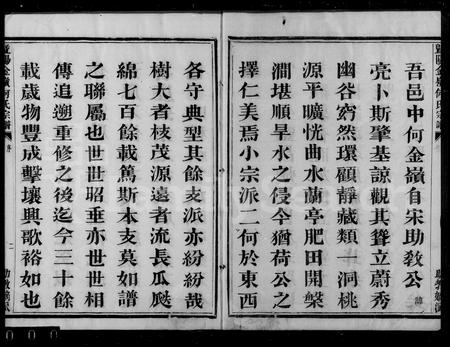 吾邑中何金嶺自宋助教公諱
亮卜斯肇基諒觀其聳立蔚秀
幽谷窈然環顧靜藏類一洞桃
源平曠恍曲水蘭亭肥田開槃
澗堪順旱水之侵今猶荷公之
擇仁美焉小宗派二何於東西
各守典型其餘支派亦紛紛哉
樹大者枝茂源遠者流長瓜瓞
綿七百餘載篤斯本支莫如譜
之聯屬也世世昭垂亦世世相
傳追遡重修之後迄今三十餘
載歲物豐成擊壤興歌裕如也
暨陽金嶺何氏宗譜
序
二